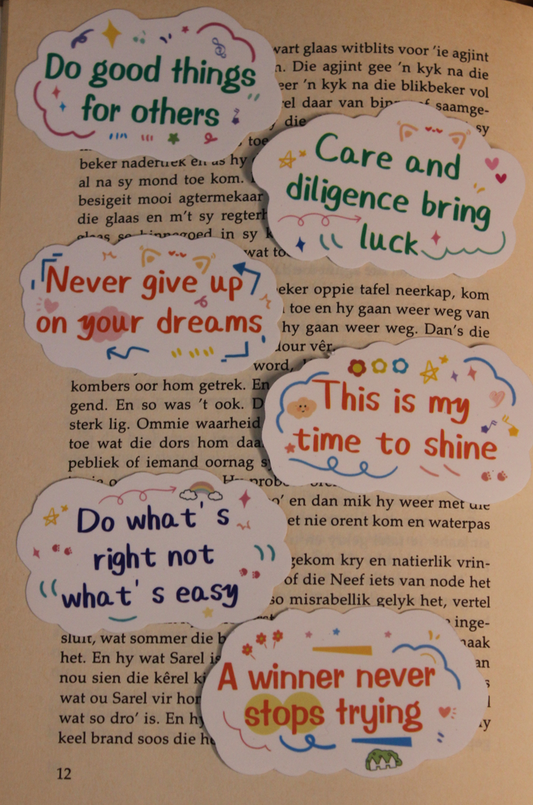 Do good things
for others
Care and
diligence bring
luck
Never give up
on your dreams
This is my
time to shine
Do what's
right not
what's easy
A winner never
stops trying
wart glaas witblits voor 'ie agjint
n. Die agjint gee 'n kyk na die
eer 'n kyk na die blikbeker vol
daar van
saamge-
die
sy
toe
beker nadertrek en as hy
al na sy mond toe kom.
besigeit mooi agtermekaar
die glaas en m't sy regterh
glaas so binnegoed in sy k
wat
eker oppie tafel neerkap, kom
toe en hy gaan weer weg van
hy gaan weer weg. Dan's die
lour vêr.
word,
kombers oor hom getrek. En
gend. En so was 't ook. D
sterk lig. Ommie waarheid
toe wat die dors hom daa
pebliek of iemand oornag s
en dan mik hy weer met die
et nie orent kom en waterpas
gekom kry en natierlik vrin-
of die Neef iets van node het
so misrabellik gelyk het, vertel
inge-
sluit, wat sommer die b
aak
het. En hy wat Sarel is
an
nou sien die kêrel k
wat ou Sarel vir hom
wat so dro' is. En hy
y
keel brand soos die he
12